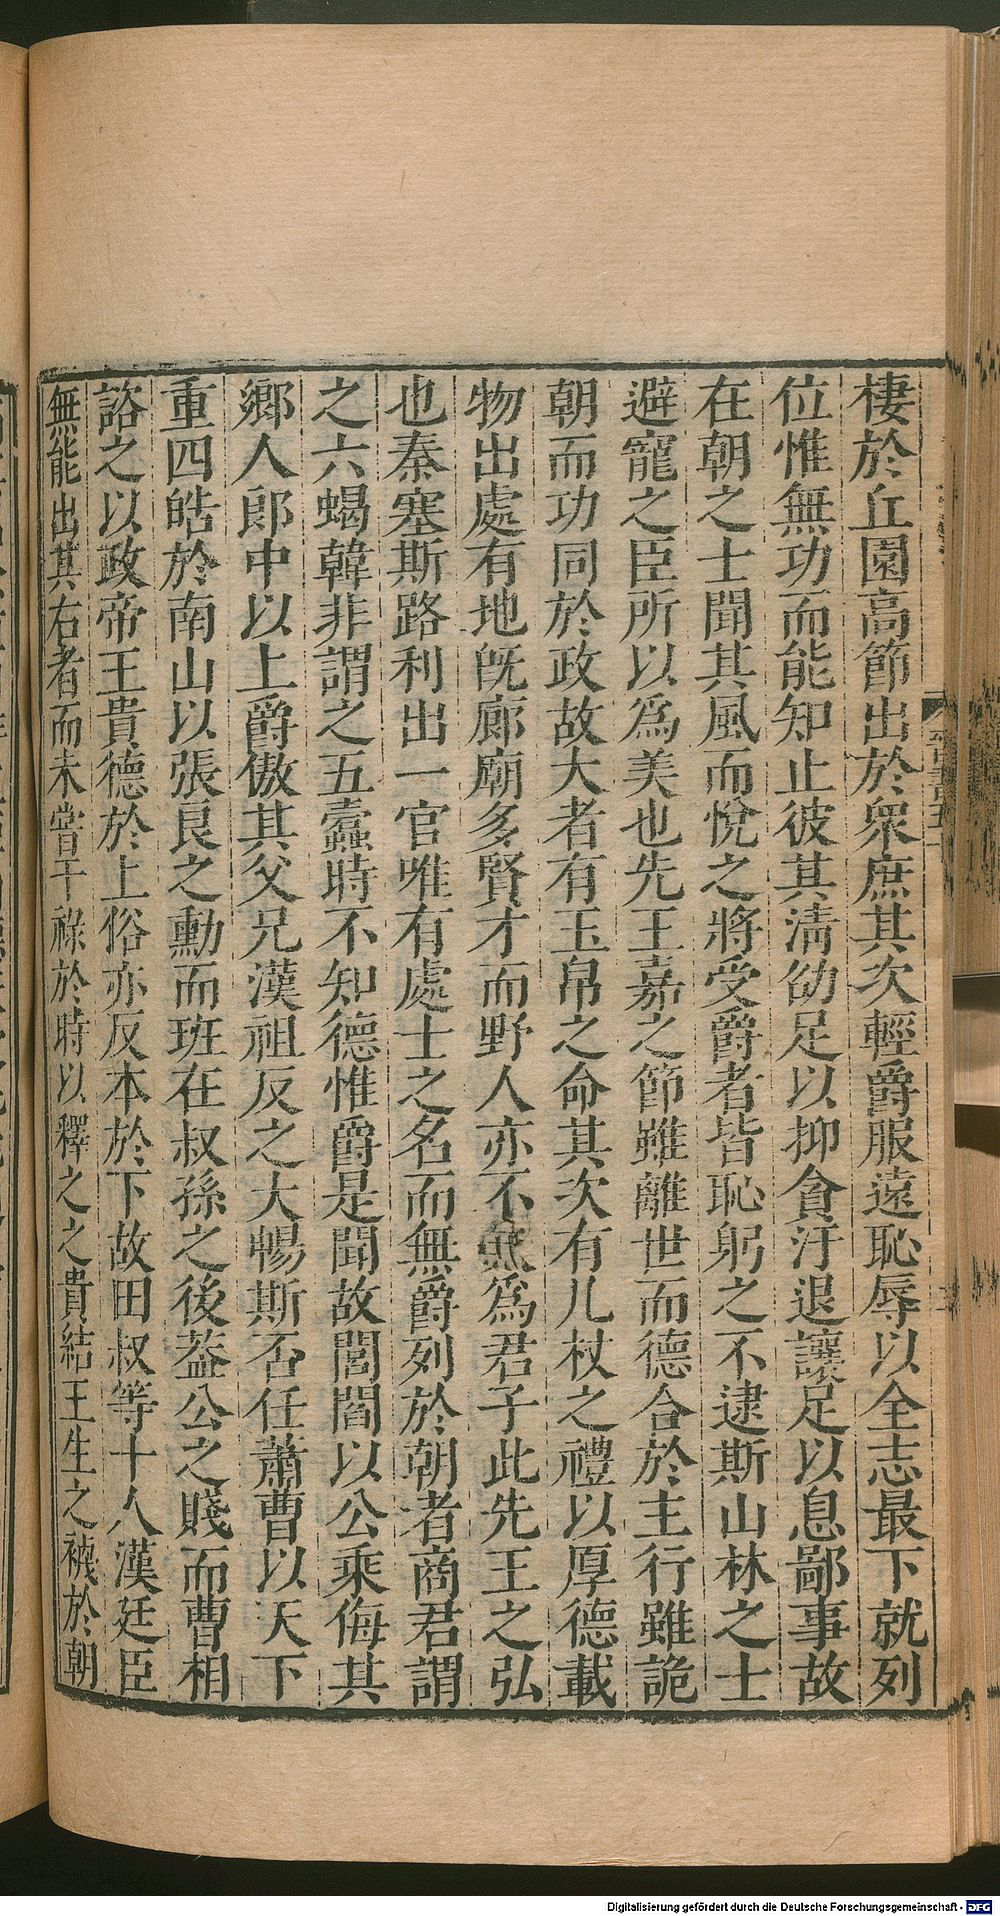 棲於丘園高節出於衆庶其次輕爵服遠恥辱以全志最下就列
位惟無功而能知止彼其清劭足以抑貪汙退讓足以息鄙事故
在朝之士聞其風而悅之將受爵者皆恥躬之不逮斯山林之士
避寵之臣所以爲美也先王嘉之節雖離世而德合於主行雖詭
朝而功同於政故大者有玉帛之命其次有几杖之禮以厚德載
物出處有地旣廊廟多賢才而野人亦不爲君子此先王之弘
也秦塞斯路利出一官唯有處士之名而無爵列於朝者商君謂
之六蝎韓非謂之五蠹時不知德惟爵是聞故閭閻以公乘侮其
鄉人郎中以上爵傲其父兄漢祖反之大暢斯否任蕭曹以天下
重四皓於南山以張良之勳而班在叔孫之後葢公之賤而曹相
諮之以政帝王貴德於上俗亦反本於下故田叔等十人漢廷臣
無能出其右者而未嘗干祿於時以釋之之貴結王生之襪於朝
Digitalisierung gefördert durch die Deutsche Forschungsgemeinschaft - DFG